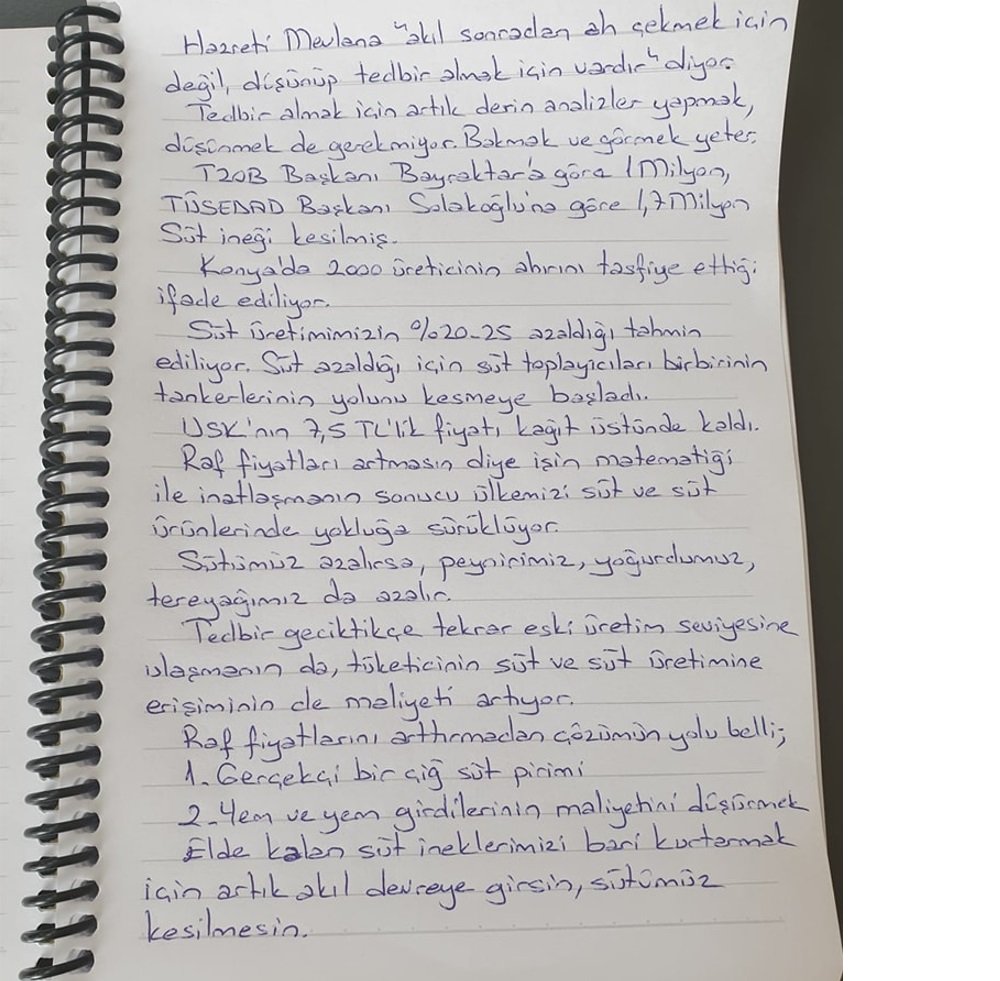 Hazreti Mevlana "akıl sonradan ah çekmek için
değil, düşünüp tedbir almak için vardır" diyor.
Tedbir almak için artık derin analizler yapmak,
düşünmek de gerekmiyor. Bakmak ve görmek yeter.
TZOB Başkanı Bayraktar'a göre 1 Milyon,
TÜSEDAD Başkanı Solakoğlu'na göre 1,7 Milyon
Süt ineği kesilmiş.
Konya'da 2000 üreticinin ahırını tasfiye ettiği
ifade ediliyor.
Süt üretimimizin %20-25 azaldığı tahmin
ediliyor. Süt azaldığı için süt toplayıcıları birbirinin
tankerlerinin yolunu kesmeye başladı.
USK'nın 7,5 TL'lik fiyatı kağıt üstünde kaldı.
Raf fiyatları artmasın diye işin matematiği
ile inatlaşmanın sonucu ülkemizi süt ve süt
ürünlerinde yokluğa sürüklüyor.
Sütümüz azalırsa, peynirimiz, yoğurdumuz,
tereyağımız da azalır.
Tedbir geciktikçe tekrar eski üretim seviyesine
ulaşmanın da, tüketicinin süt ve süt üretimine
erişiminin de maliyeti artıyor.
Raf fiyatlarını arttırmadan çözümün yolu belli;
1. Gerçekçi bir çiğ süt pirimi
2- Yem ve yem girdilerinin maliyetini düşürmek
Elde kalan süt ineklerimizi bari kurtarmak
için artık akıl devreye girsin, sütümüz
kesilmesin.